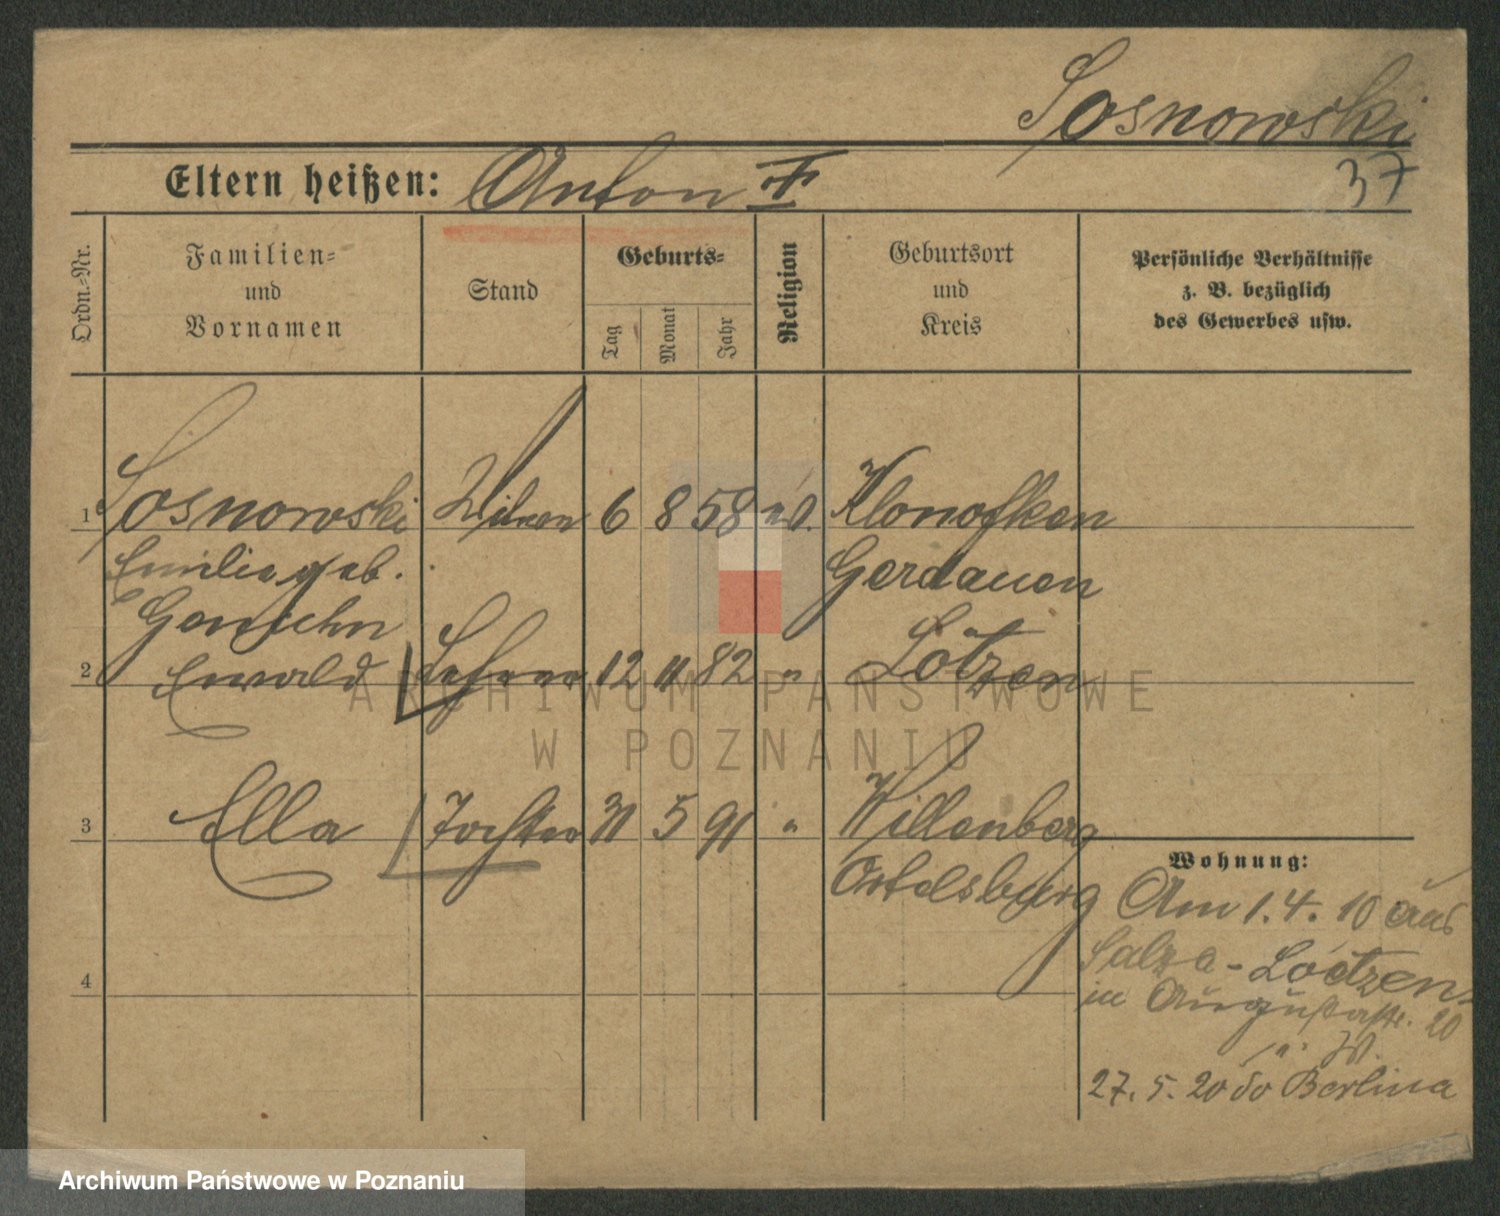 Sosnowski
37
Eltern heißen: Anton †
Ordn.-Nr.
Familien-
und
Vornamen
Stand
Geburts-
Tag
Monat
Jahr
Religion
Geburtsort
und
Kreis
Persönliche Verhältnisse
z. B. bezüglich
des Gewerbes usw.
1 Sosnowski Witwe 6 8 58 Klonofken
Emilie geb. Gerdauen
2 Ewald 12 11 82 " Lötzen
3 Ella Tochter 31 5 91 " Willenberg
Ortelsburg
4
Wohnung:
Am 1.4.10 aus
Salza - Lötzen
in Augustastr. 20
27.5.20 Berlin
ARCHIWUM PAŃSTWOWE
W POZNANIU
Archiwum Państwowe w Poznaniu